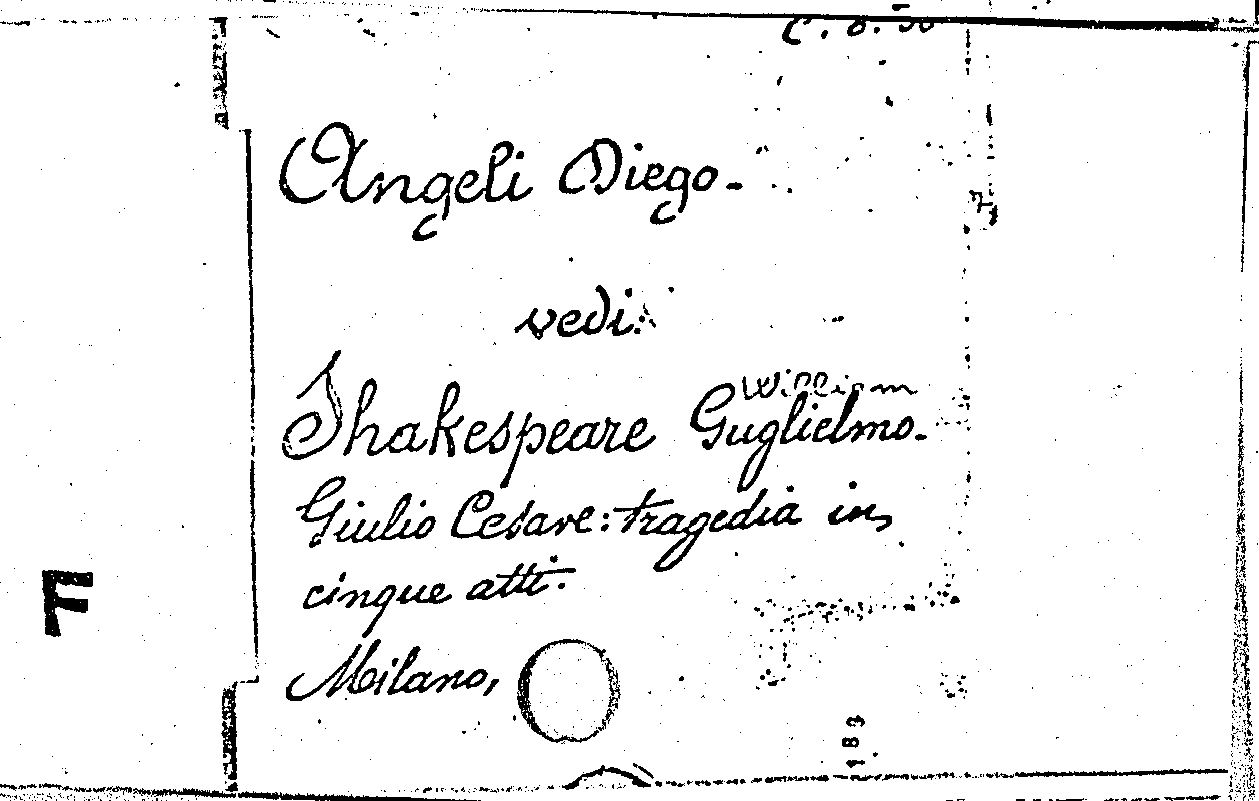 C. 8. 50
Angeli Diego.
vedi:
William
Shakespeare Guglielmo.
Giulio Cesare: tragedia in
cinque atti.
F
Milano,
183